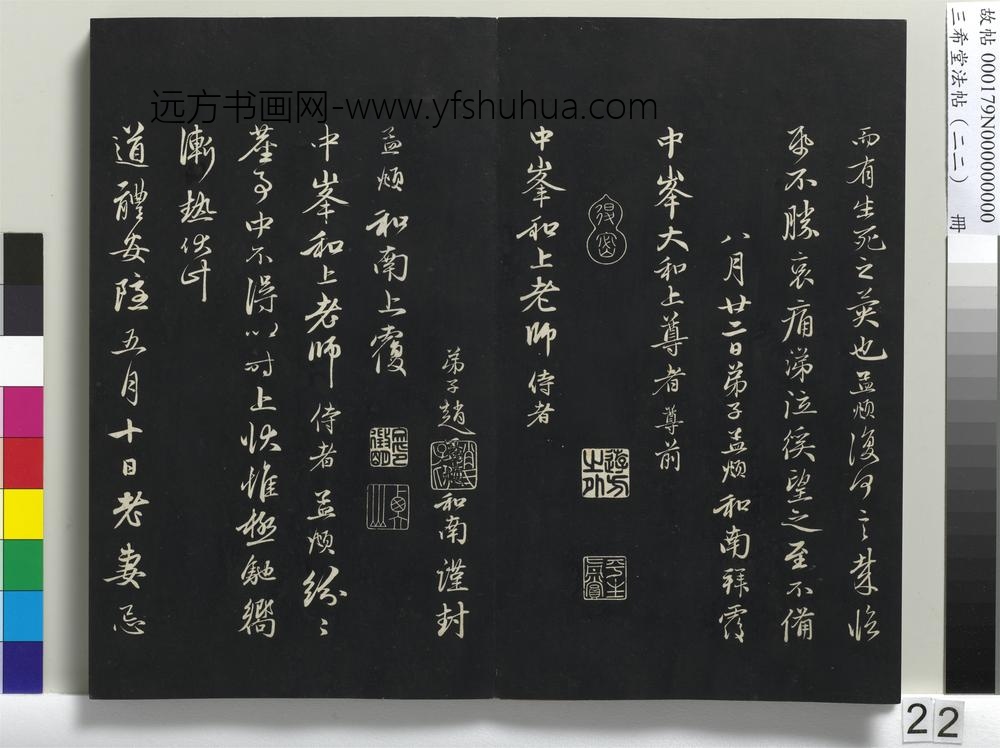 而有生死之異也孟頫復何言哉臨
帋不勝哀痛涕泣徯望之至不備
八月廿二日弟子孟頫和南拜覆
中峯大和上尊者尊前
得密
游方之外
平生真賞
中峯和上老師侍者
弟子趙孟頫和南謹封
孟頫和南上覆
中峯和上老師侍者孟頫紛々
塵事中不得以時上状惟極馳嚮
漸熱伏計
道體安隱五月十日老妻忌
远方书画网-www.yfshuhua.com
故帖 000179N000000000
三希堂法帖(二二) 册
22